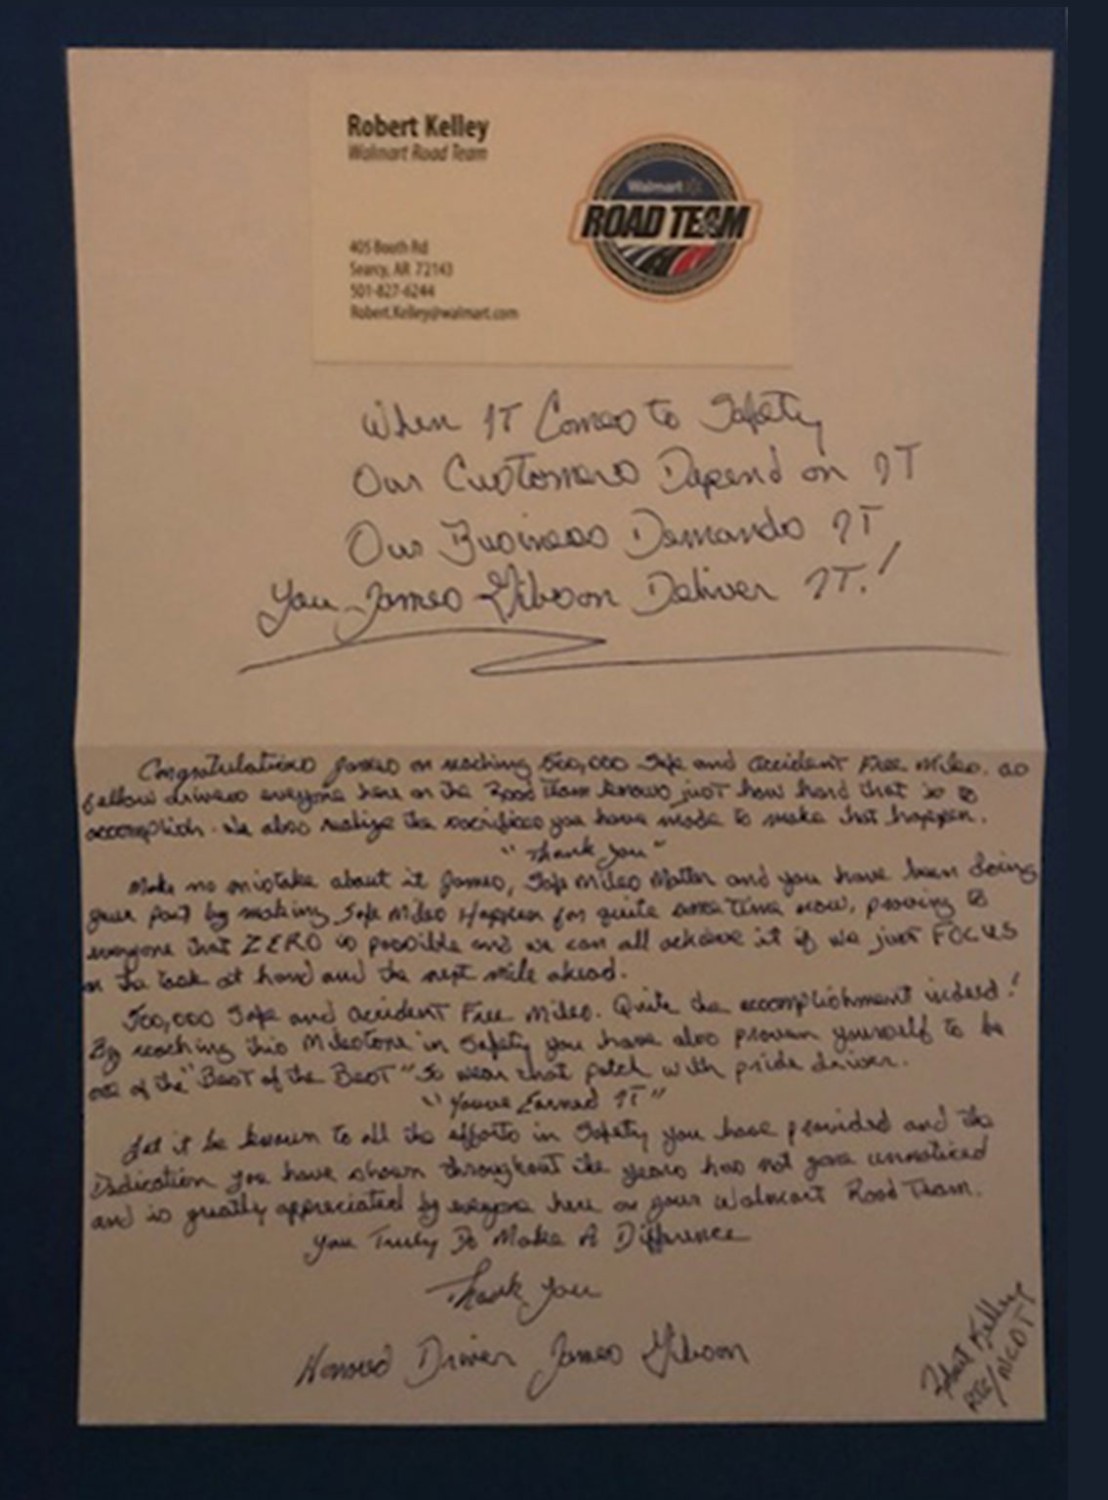 Robert Kelley
Walmart Road Team
Walmart
ROAD TEAM
405 Booth Rd
Searcy, AR 72143
501-827-6244
Robert.Kelley@walmart.com
When IT Comes to Safety
Our Customers Depend on IT
Our Business Demands IT
You James Gibson Deliver IT!
Congratulations James on reaching 500,000 Safe and accident Free Miles. as
fellow drivers everyone here on the Road Team knows just how hard that is to
accomplish. We also realize the sacrifices you have made to make that happen.
"Thank you"
Make no mistake about it James, Safe Miles Matter and you have been doing
your part by making Safe Miles Happen for quite some time now, proving to
everyone that ZERO is possible and we can all achieve it if we just FOCUS
on the task at hand and the next mile ahead.
500,000 Safe and accident Free Miles. Quite the accomplishment indeed!
By reaching this Milestone in Safety you have also proven yourself to be
one of the "Best of the Best" So wear that patch with pride driver.
"Youve Earned IT"
Let it be known to all the efforts in Safety you have provided and the
Dedication you have shown throughout the years has not gone unnoticed
and is greatly appreciated by everyone here on your Walmart Road Team.
You Truly Do Make A Difference
Thank You
Honored Driver James Gibson
Robert Kelley